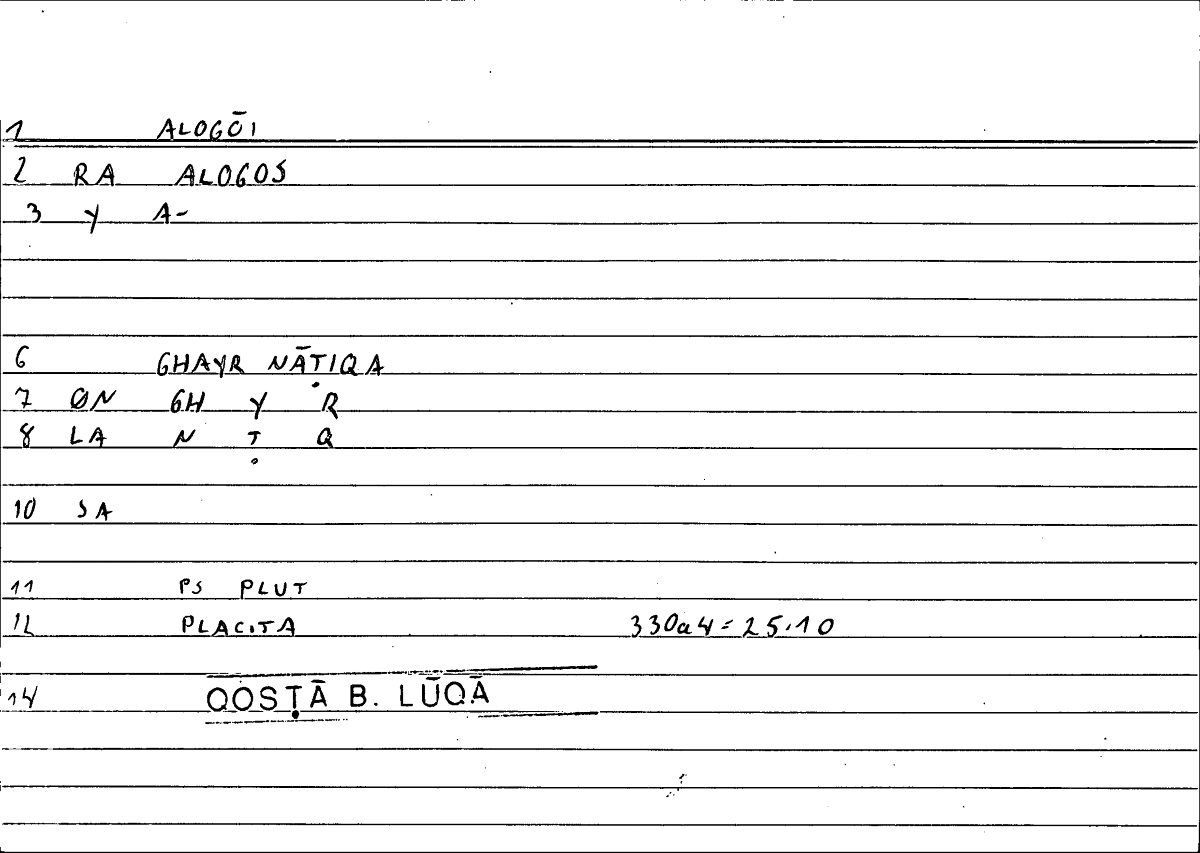 1 ALOGŌI
2 RA ALOGOS
3 Y A-
6 GHAYR NĀṬIQA
7 ØN GH Y R
8 LA N Ṭ Q
10 SA
11 PS PLUT
12 PLACITA 330a4=25.10
14 QOSṬĀ B. LŪQĀ